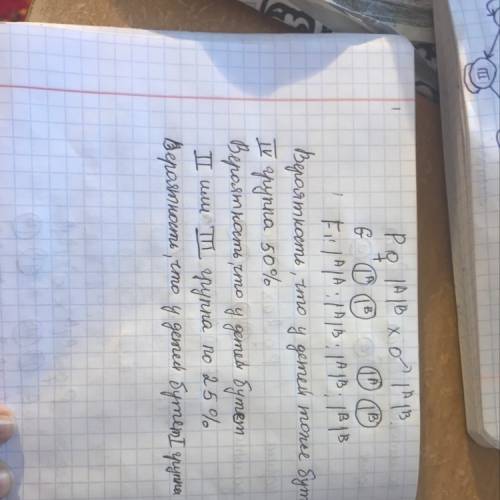 P: ♀ IᴬIᴮ × ♂ IᴬIᴮ
G Iᴬ Iᴮ Iᴬ Iᴮ
F₁: IᴬIᴬ; IᴬIᴮ; IᴬIᴮ; IᴮIᴮ
Вероятность, что у детей тоже бут
IV группа 50%
Вероятность, что у детей бутет
II или III группа по 25%
Вероятность, что у детей бутет I группа
III